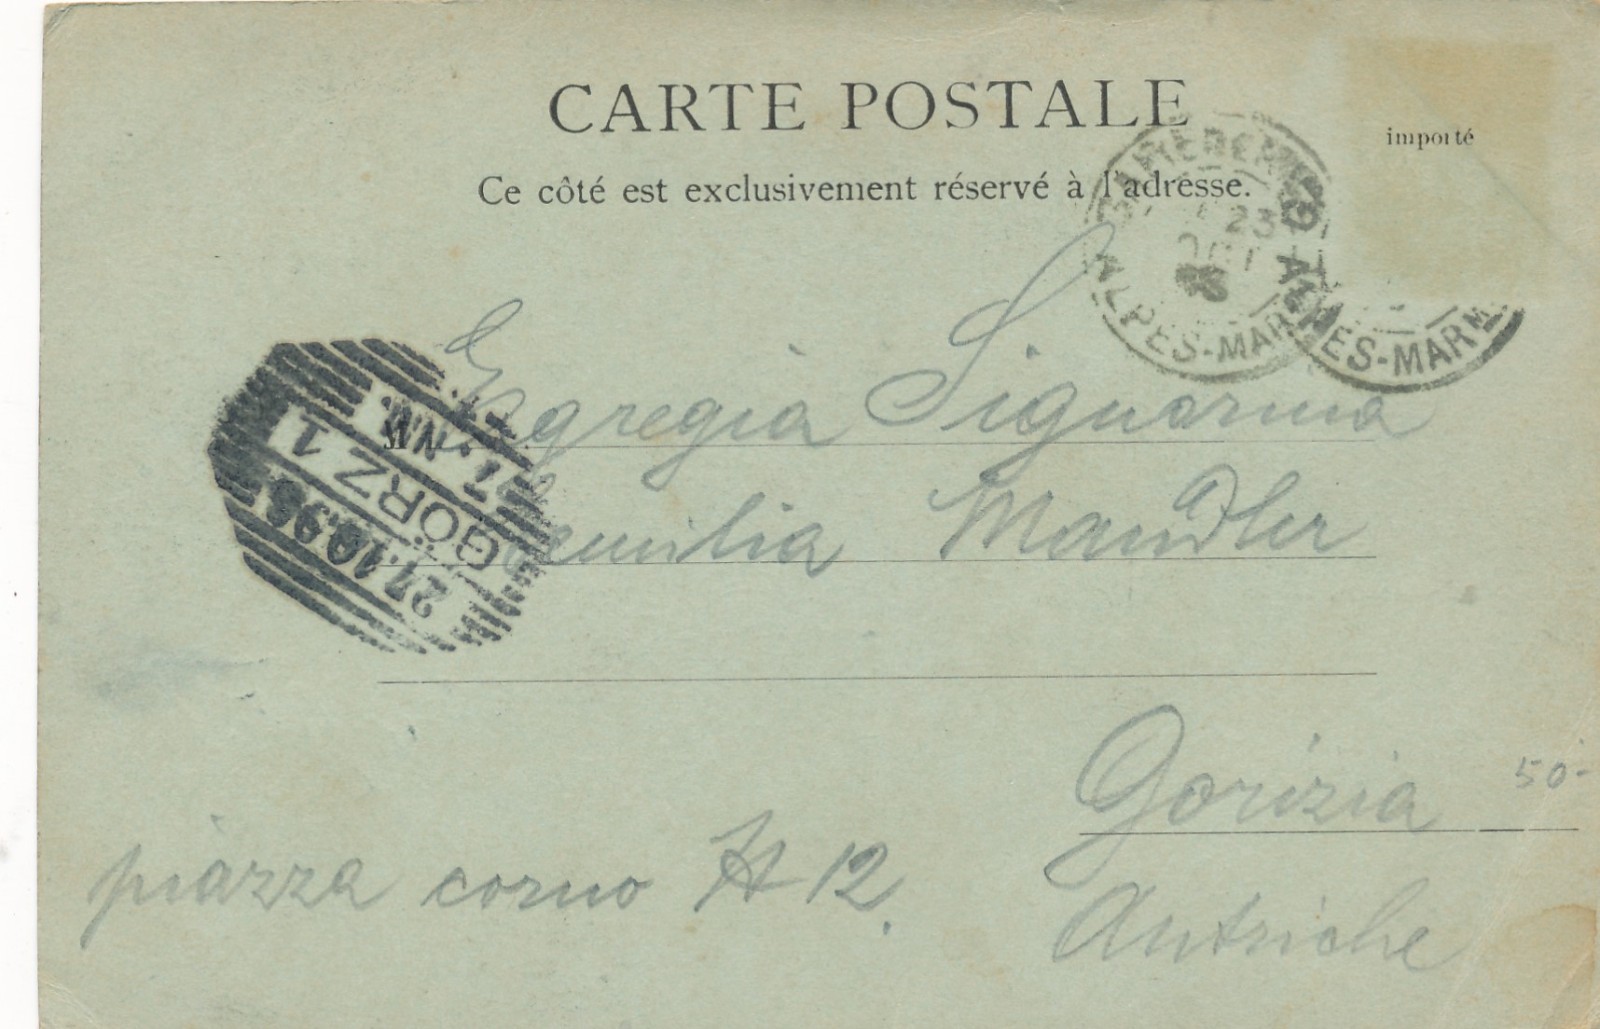 CARTE POSTALE
importé
Ce côté est exclusivement réservé à l'adresse.
23
OCT
ALPES-MAR
ALPES-MARM
M
Egregia Signorina
Emilia Mandler
GÖRZ 1
27.10.98
Gorizia
50-
piazza corno N 12.
Autriche